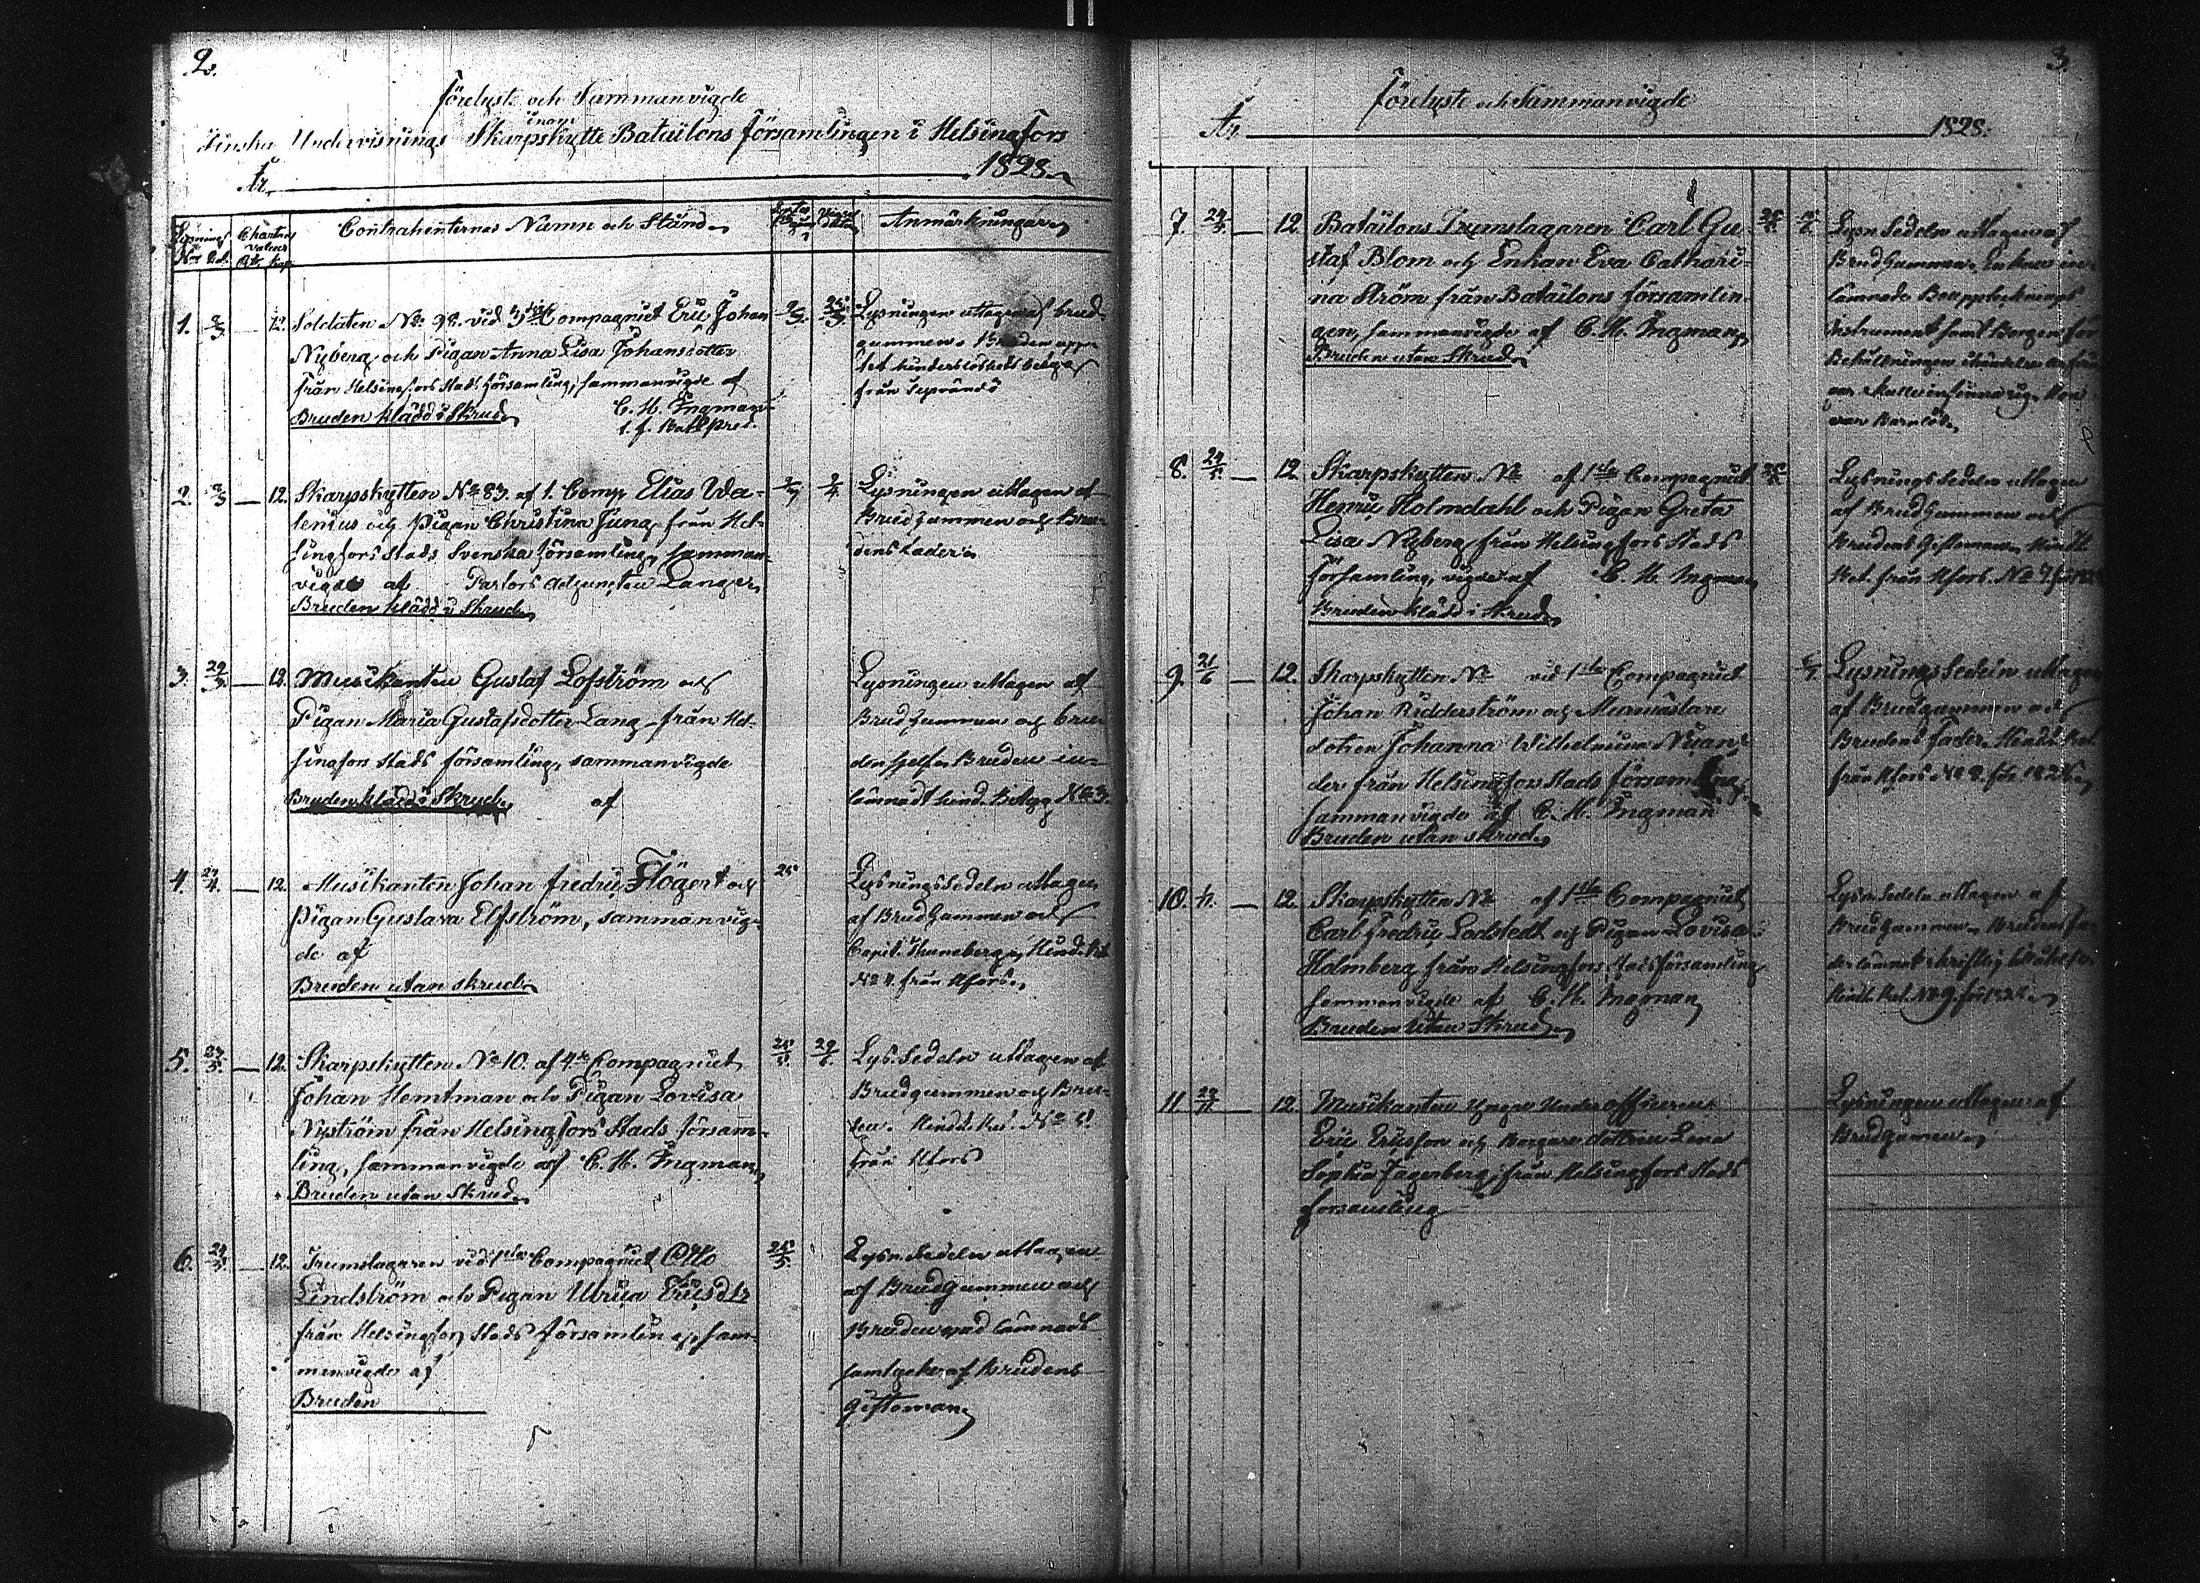 2.
Förelyste och Sammanvigde
inom
Finska Undervisnings Skarpskytte Batailons församlingen i Helsingfors
År 1828.
Lysnings Charta Contrahenternas Namn och Stånd Anmärkningar
No
1. 2/3 12. Soldaten No 98. vid 3die Compagniet Eric Johan
Nyberg och Pigan Anna Lisa Johansdotter
från Helsingfors Stads församling, sammanvigde af
Bruden klädd i Skrud C. H. Ingman
Lysningen uttagen af brud-
gummen. Bruden
från
2. 2/3 12. Skarpskytten No 83. af 1. Comp. Elias Wa-
lenius och Pigan Christina Jung, från Hel-
singfors Stads Svenska församling, samman-
vigde af Pastors Adjuncten Langer
Bruden klädd i Skrud
Lysningen uttagen af
Brudgummen och Bru-
dens Fader
3. 29/3 12. Musikanten Gustaf Lofström och
Pigan Maria Gustafsdotter Lang från Hel-
singfors Stads församling, sammanvigde
Bruden klädd i Skrud af
Lysningen uttagen af
Brudgummen och bru-
den sjelf. Bruden in-
lämnadt hind. Betyg No 3.
4. 27/4 12. Musikanten Johan Fredric Flögert och
Pigan Gustava Elfström, sammanvig-
de af
Bruden utan skrud
25
Lysningssedeln uttagen
af Brudgummen och
Capit. Thuneberg, Hind.
No 4. från Hfors.
5. 24/5 12. Skarpskytten No 10. af 4de Compagniet
Johan Hemtman och Pigan Lovisa
Nyström från Helsingfors Stads försam-
ling, sammanvigde af C. H. Ingman
Bruden utan Skrud
25/5 29/6
Lys. Sedeln uttagen af
Brudgummen och Bru-
den. Hind. No 5
från Hfors
6. 24/5 12. Trumslagaren vid 1sta Compagniet Otto
Lindström och Pigan Ulrica Ericsdtr
från Helsingfors Stads församling, sam-
manvigde af
Bruden
25/5
Lysn. Sedeln uttagen
af Brudgummen och
Bruden
samtycke af Brudens
Giftoman
3.
Förelyste och Sammanvigde
År 1828.
7. 24/5 12. Batailons Trumslagaren Carl Gu-
staf Blom och Enkan Eva Cathari-
na Ström från Batailons församlin-
gen, sammanvigde af C. H. Ingman,
Bruden utan Skrud
Lysn. Sedeln uttagen af
Brudgummen. Enkan in-
lämnade Bouppteknings
Instrument samt
var Barnlös
8. 24/5 12. Skarpskytten No af 1sta Compagniet
Henric Holmdahl och Pigan Greta
Lisa Nyberg från Helsingfors Stads
församling, vigde af C. H. Ingman
Bruden klädd i Skrud
Lysnings Sedeln uttagen
af Brudgummen och
Brudens Giftoman.
från Hfors. No 7.
9. 21/6 12. Skarpskytten No vid 1sta Compagniet
Johan Ridderström och Murmästare
dotren Johanna Wilhelmina Nuan-
der från Helsingfors Stads församling,
sammanvigde af C. H. Ingman
Bruden utan skrud
Lysnings Sedeln uttagen
af Brudgummen och
Brudens Fader.
från Hfors No 8. för 1828
10. 12. Skarpskytten No af 1sta Compagniet
Carl Fredric Ladstedt och Pigan Lovisa
Holmberg från Helsingfors Stads församling
sammanvigde af C. H. Ingman
Bruden utan Skrud
Lysn. Sedeln uttagen af
Brudgummen. Brudens fa-
der lämnat skriftlig
No 9. för 1828
11. 12. Musikanten Under officeren
Eric Ericsson och Borgare dottren Lena
Sophia Jagerberg från Helsingfors Stads
församling
Lysningen uttagen af
Brudgummen